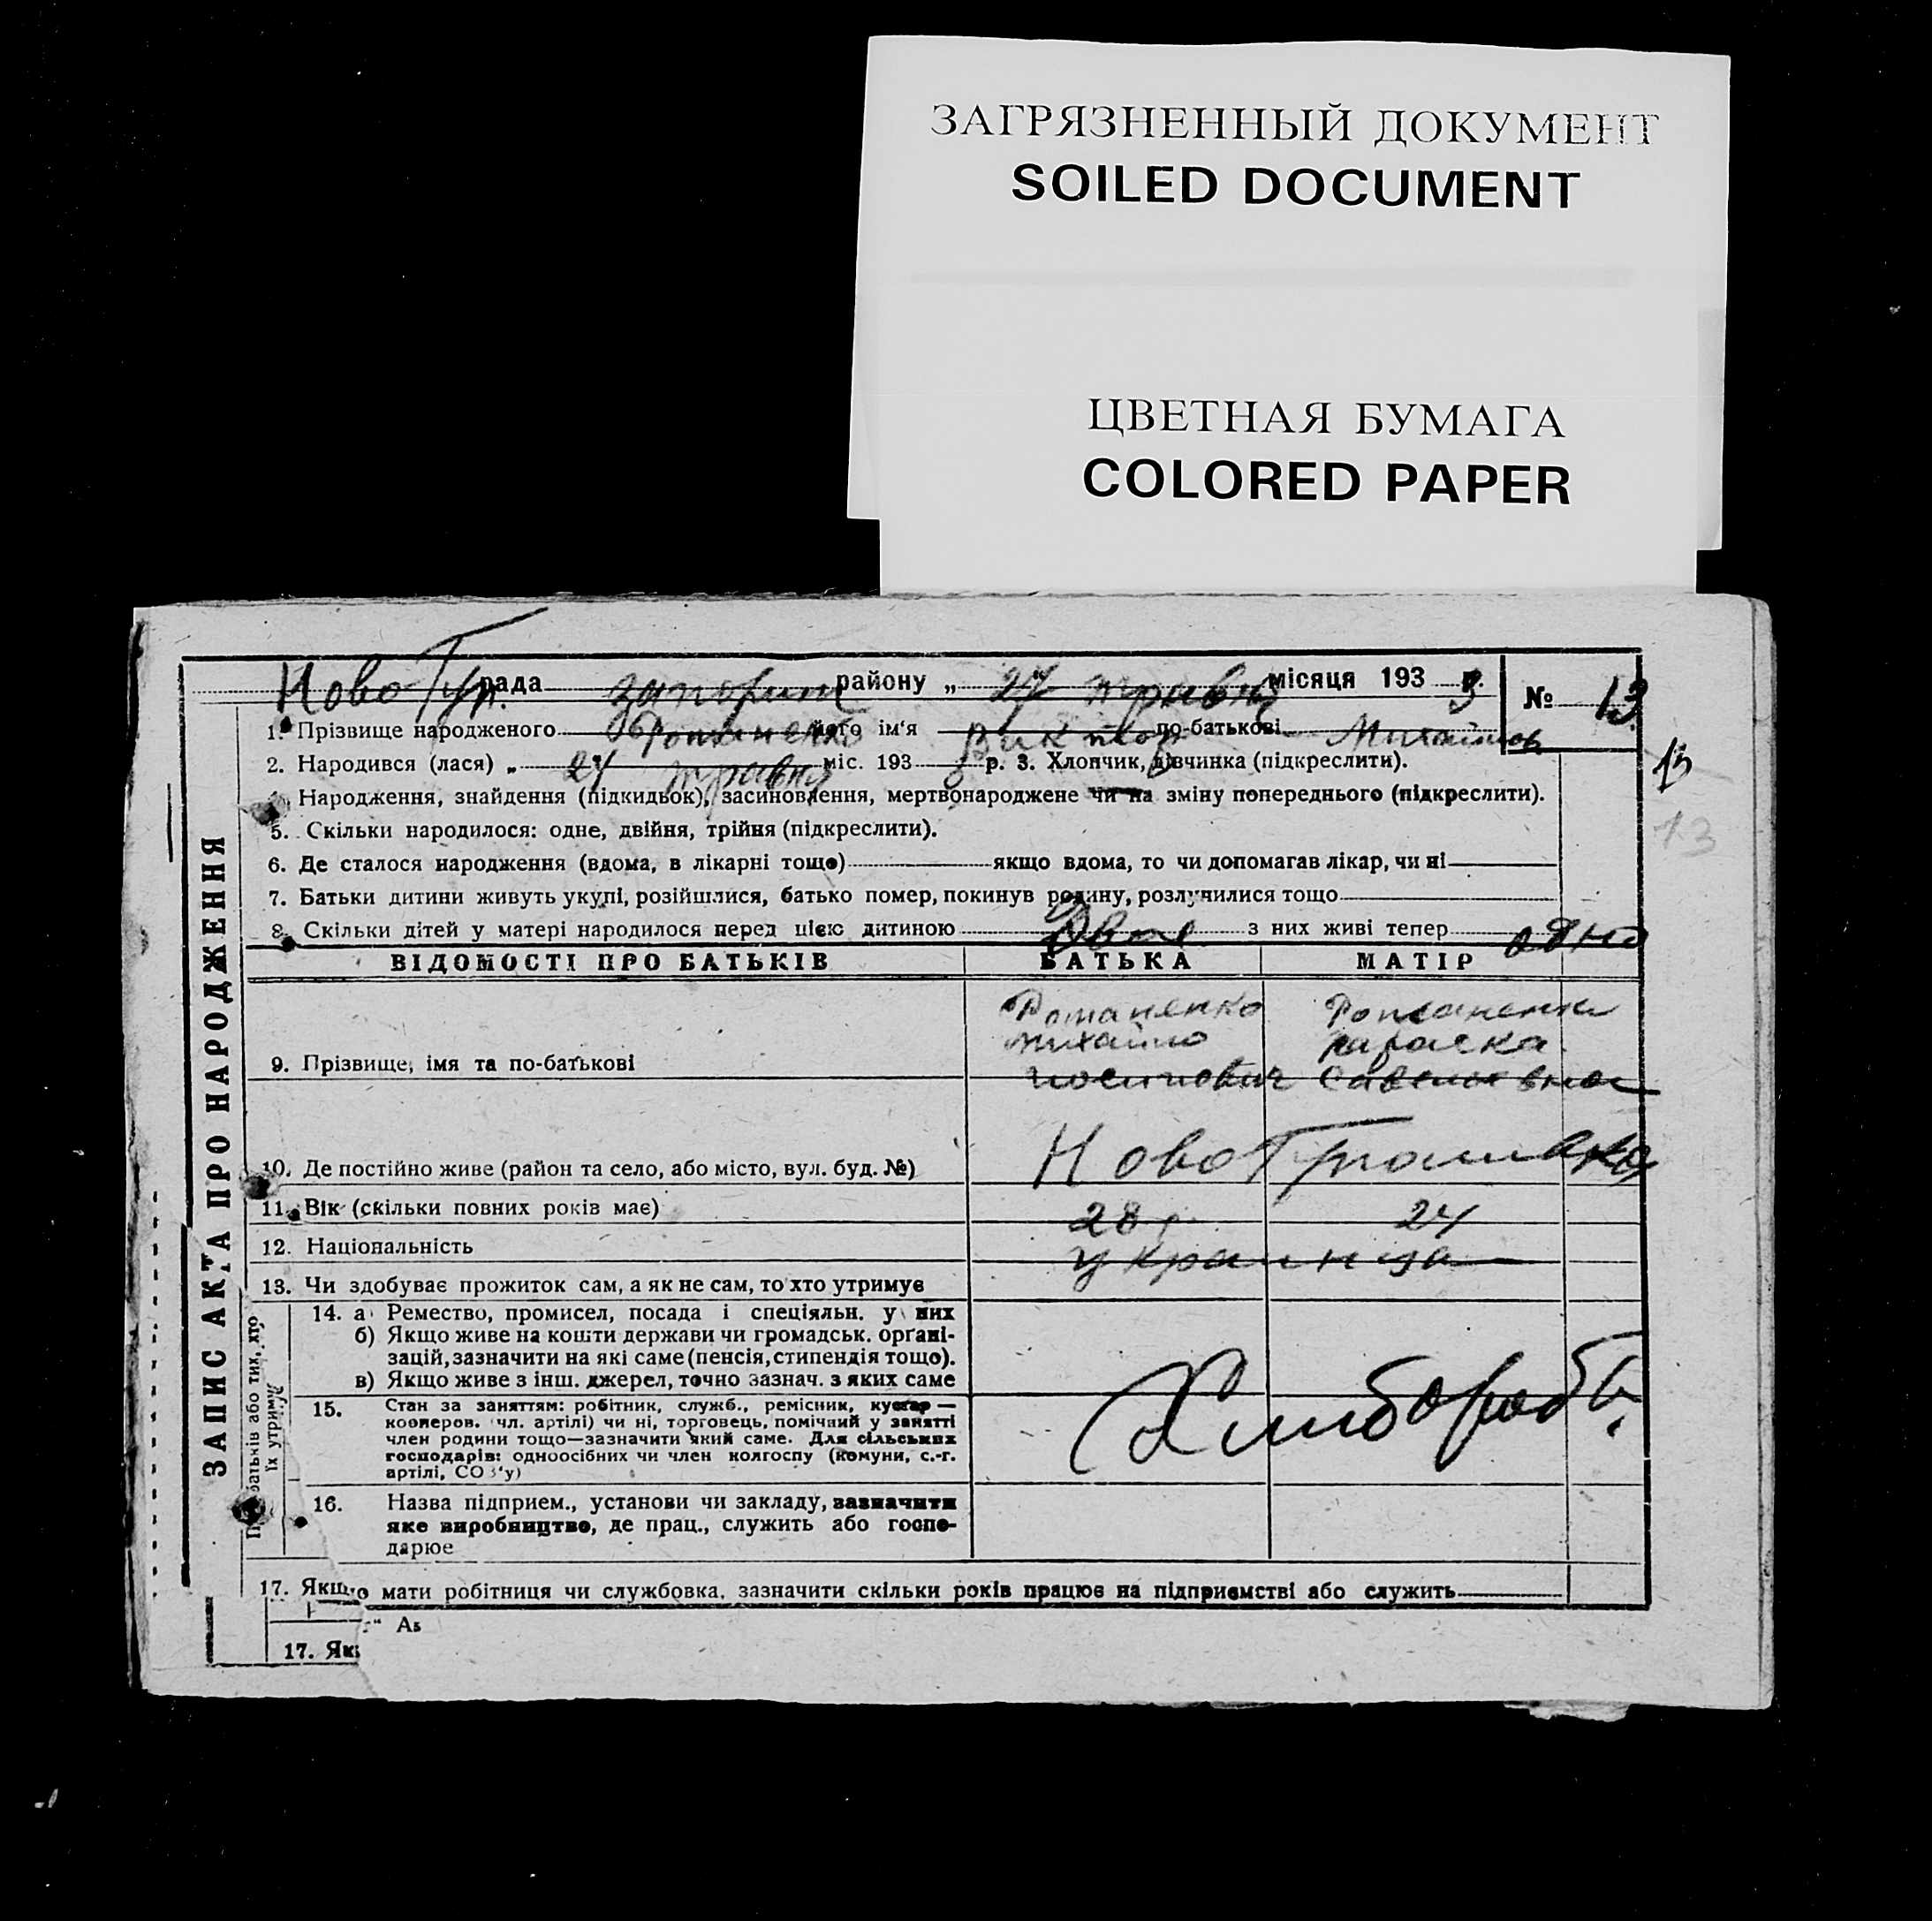 ЗАГРЯЗНЕННЫЙ ДОКУМЕНТ
SOILED DOCUMENT
ЦВЕТНАЯ БУМАГА
COLORED PAPER
Ново рада району „ 27 травня місяця 193 3 р. № 13
1. Прізвище народженого Романенко його ім‘я Виктор по-батькові
13
2. Народився (лася) „ травня міс. 193 р. 3. Хлопчик, дівчинка (підкреслити).
Народження, знайдення (підкидьок), засиновлення, мертвонароджене чи на зміну попереднього (підкреслити).
13
5. Скільки народилося: одне, двійня, трійня (підкреслити).
6. Де сталося народження (вдома, в лікарні тощо) якщо вдома, то чи допомагав лікар, чи ні
7. Батьки дитини живуть укупі, розійшлися, батько помер, покинув родину, розлучилися тощо
8. Скільки дітей у матері народилося перед цією дитиною двое з них живі тепер одно
ЗАПИС АКТА ПРО НАРОДЖЕННЯ
ВІДОМОСТІ ПРО БАТЬКІВ БАТЬКА МАТІР
Романенко Романенко
Михайло параска
9. Прізвище, імя та по-батькові иосипович Савельевна
10. Де постійно живе (район та село, або місто, вул. буд. №)
11. Вік (скільки повних років має) 28 р. 24
12. Національність украинца
13. Чи здобуває прожиток сам, а як не сам, то хто утримує
батьків або тих, хто
їх утримує
14. а Ремество, промисел, посада і спеціяльн. у них
б) Якщо живе на кошти держави чи громадськ. органі-
зацій, зазначити на які саме (пенсія, стипендія тощо).
в) Якщо живе з інш. джерел, точно зазнач. з яких саме
15. Стан за заняттям: робітник, служб., ремісник, кустар—
кооперов. чл. артілі) чи ні, торговець, помічний у занятті
член родини тощо—зазначити який саме. Для сільських
господарів: одноосібних чи член колгоспу (комуни, с.-г.
артілі, СО З‘у)
16. Назва підприєм., установи чи закладу, зазначити
яке виробництво, де прац., служить або госпо-
дарює
17. Якщо мати робітниця чи службовка, зазначити скільки років працює на підприємстві або служить
17. Як